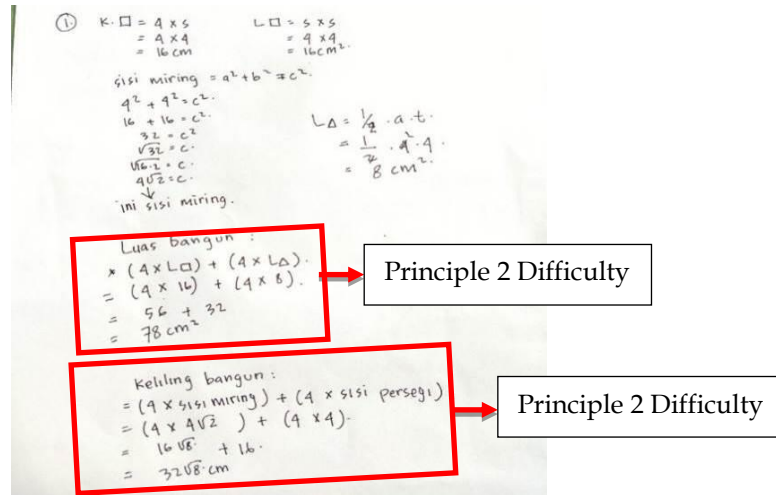 1.
K. □ = 4 x s
= 4 x 4
= 16 cm
L □ = s x s
= 4 x 4
= 16 cm².
sisi miring = a² + b² = c².
4² + 4² = c².
16 + 16 = c².
32 = c²
√32 = c.
√16·2 = c.
4√2 = c.
↓
ini sisi miring.
L△ = 1/2 . a . t.
= 1/2 . 4² . 4 .
= 8 cm².
Luas bangun :
* (4 x L□) + (4 x L△).
= (4 x 16) + (4 x 8).
= 56 + 32
= 78 cm²
Principle 2 Difficulty
Keliling bangun :
= (4 x sisi miring) + (4 x sisi persegi)
= (4 x 4√2 ) + (4 x 4).
= 16√8. + 16.
= 32√8.cm
Principle 2 Difficulty